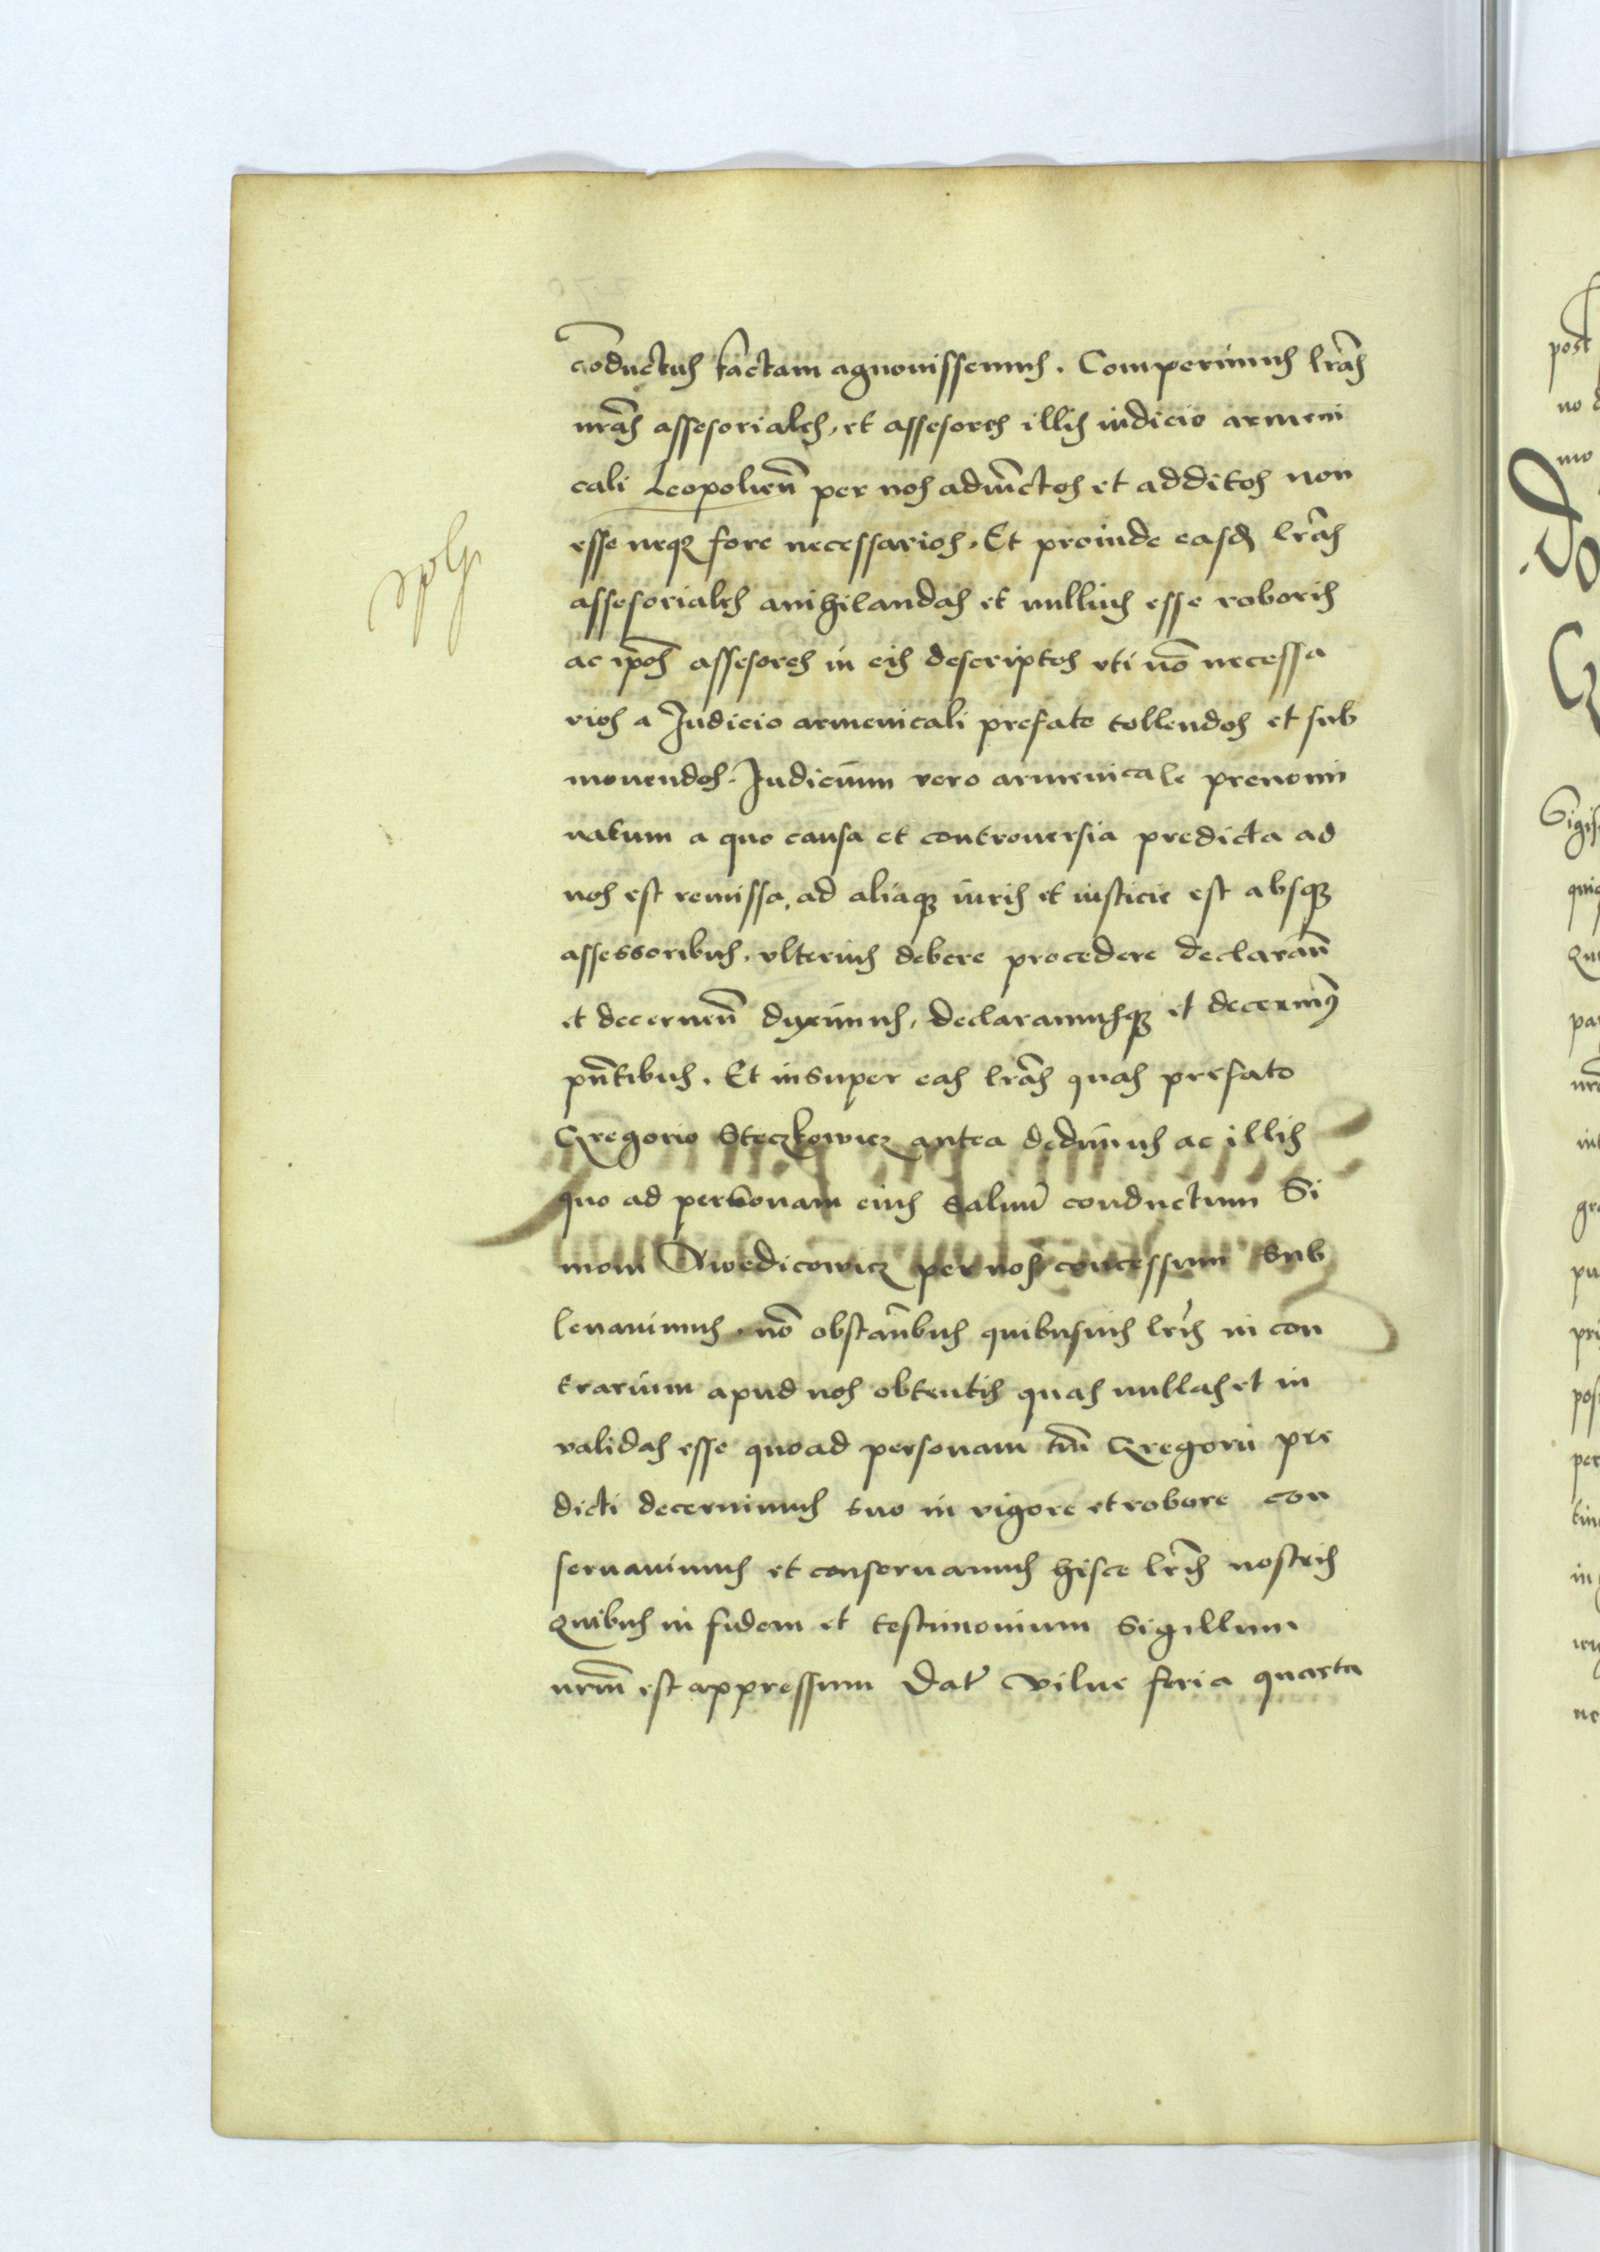 cōductus factam agnouissemus. Comperimus lrās
nrās assesoriales, et assesores illis iudicio armeni
cali Leopolien̄ per nos adiūctos et additos non
esse neqꝫ fore necessarios. Et proinde easdꝫ lrās
assesoriales anihilandas et nullius esse roboris
ac ip̄os assesores in eis descriptos vti nō necessa
rios a Judicio armenicali prefato tollendos et sub
mouendos. Judicium vero armenicale prenomi
natum a quo causa et controuersia predicta ad
nos est remissa, ad aliaqꝫ iuris et iusticie est absqꝫ
assessoribus. vlterius debere procedere declarań
et decerneń duximus, declaramusqꝫ et decernimꝰ
pn̄tibus. Et insuper eas lrās quas prefato
Gregorio Steczkowicz antea dedimus ac illis
quo ad personam eius saluū conductum Si
moni Awedicowicz per nos concessum Sub
leuauimus. nō obstan̄bus quibusuis lrīs in con
trarium apud nos obtentis quas nullas et in
validas esse quoad personam tm̄ Gregorii pre
dicti decernimus suo in vigore et robore con
seruauimus et conseruamus hisce lrīs nostris
Quibus in fidem et testimonium Sigillum
nrm̄ est appressum Dat̄ Vilne feria quarta